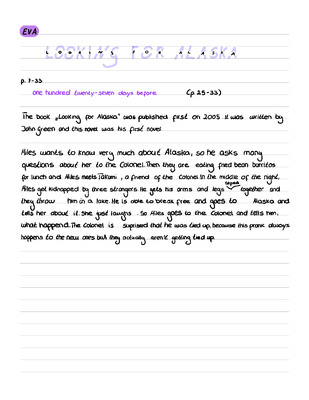 EVA
LOOKING FOR ALASKA
p. 7-33
one hundred twenty-seven days before (p. 25-33)
The book „Looking for Alaska" was published first on 2005. It was written by
John Green and this novel was his first novel
Miles wants to know very much about Alaska, so he asks many
questions about her to the Colonel. Then they are eating fried bean borritos
for lunch and Miles meets Takumi, a friend of the Colonel. In the middle of the night,
Miles get kidnapped by three strangers. He gets his arms and legs taped together and
they throw him in a lake. He is able to break free and goes to Alaska and
tells her about it. She just laughs. So Miles goes to the Colonel and tells him,
what happend. The Colonel is suprised that he was tied up, because this prank always
happens to the new ones but they actually aren't getting tied up.